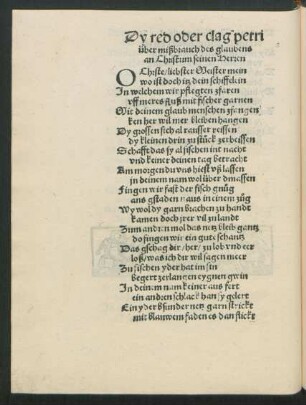 Dy red oder clag petri
über mißbrauch des glaubens
an Christum seinen Herren
O Christe/ liebster Meister mein
wo ist doch in dein schiffelein
In welchem wir pflegten zfaren
vff meres fluß mit fischer garnen
Mit deinem glaub menschen zfangen
ken her wil mer bleiben hangen
Dy grossen sich al rausser reissen
dy kleinen drin zu stück zerbeissen
Schafft das sy al fischen int nacht
vnd keiner deinen tag betracht
Am morgen du vns hiest vß lassen
in deinem nam wol über dmassen
Fingen wir fast der fisch gnůg
ans gstaden naus in einem zůg
Wy wol dy garn brachen zu handt
kamen doch zwen vil zu landt
Zum andrn mol das netz bleib gantz
do fingen wir ein gute schantz
Das gschag dir/ her/ zu lob vnd eer
loß/ was ich dir wil sagen meer
Zu fischen yder hat im sin
begert zerlangen eygnen gwin
In deinem nam keiner aus fert
ein andren schlack han sy gelert
Ein yder bsunder netz garn strickt
mit blauwem faden es dan stickt